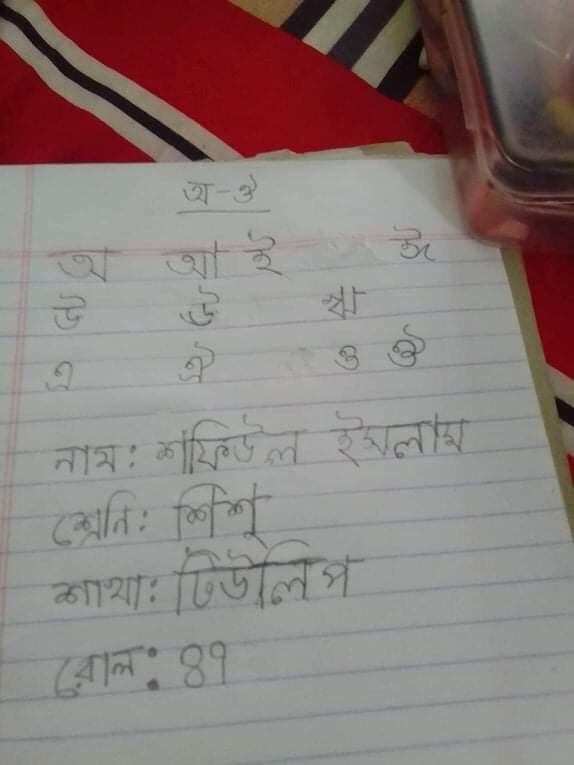 অ-ঔ
অ আ ই ঈ
উ ঊ ঋ
এ ঐ ও ঔ
নাম: শফিউল ইসলাম
শ্রেনি: শিশু
শাখা: টিউলিপ
রোল: ৪৭